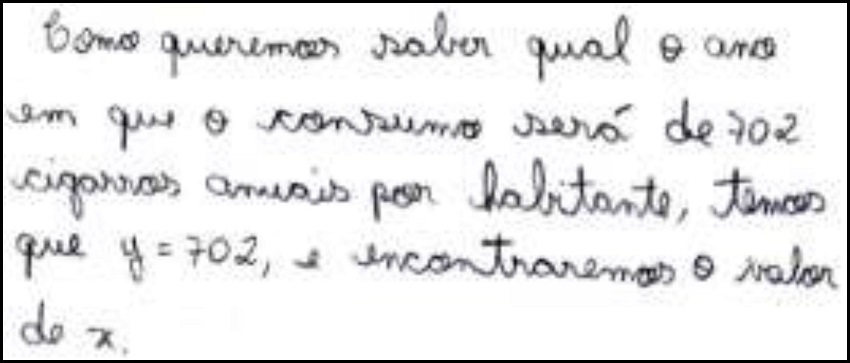 Como queremos saber qual o ano
em que o consumo será de 702
cigarros anuais por habitante, temos
que y = 702, e encontraremos o valor
de x.